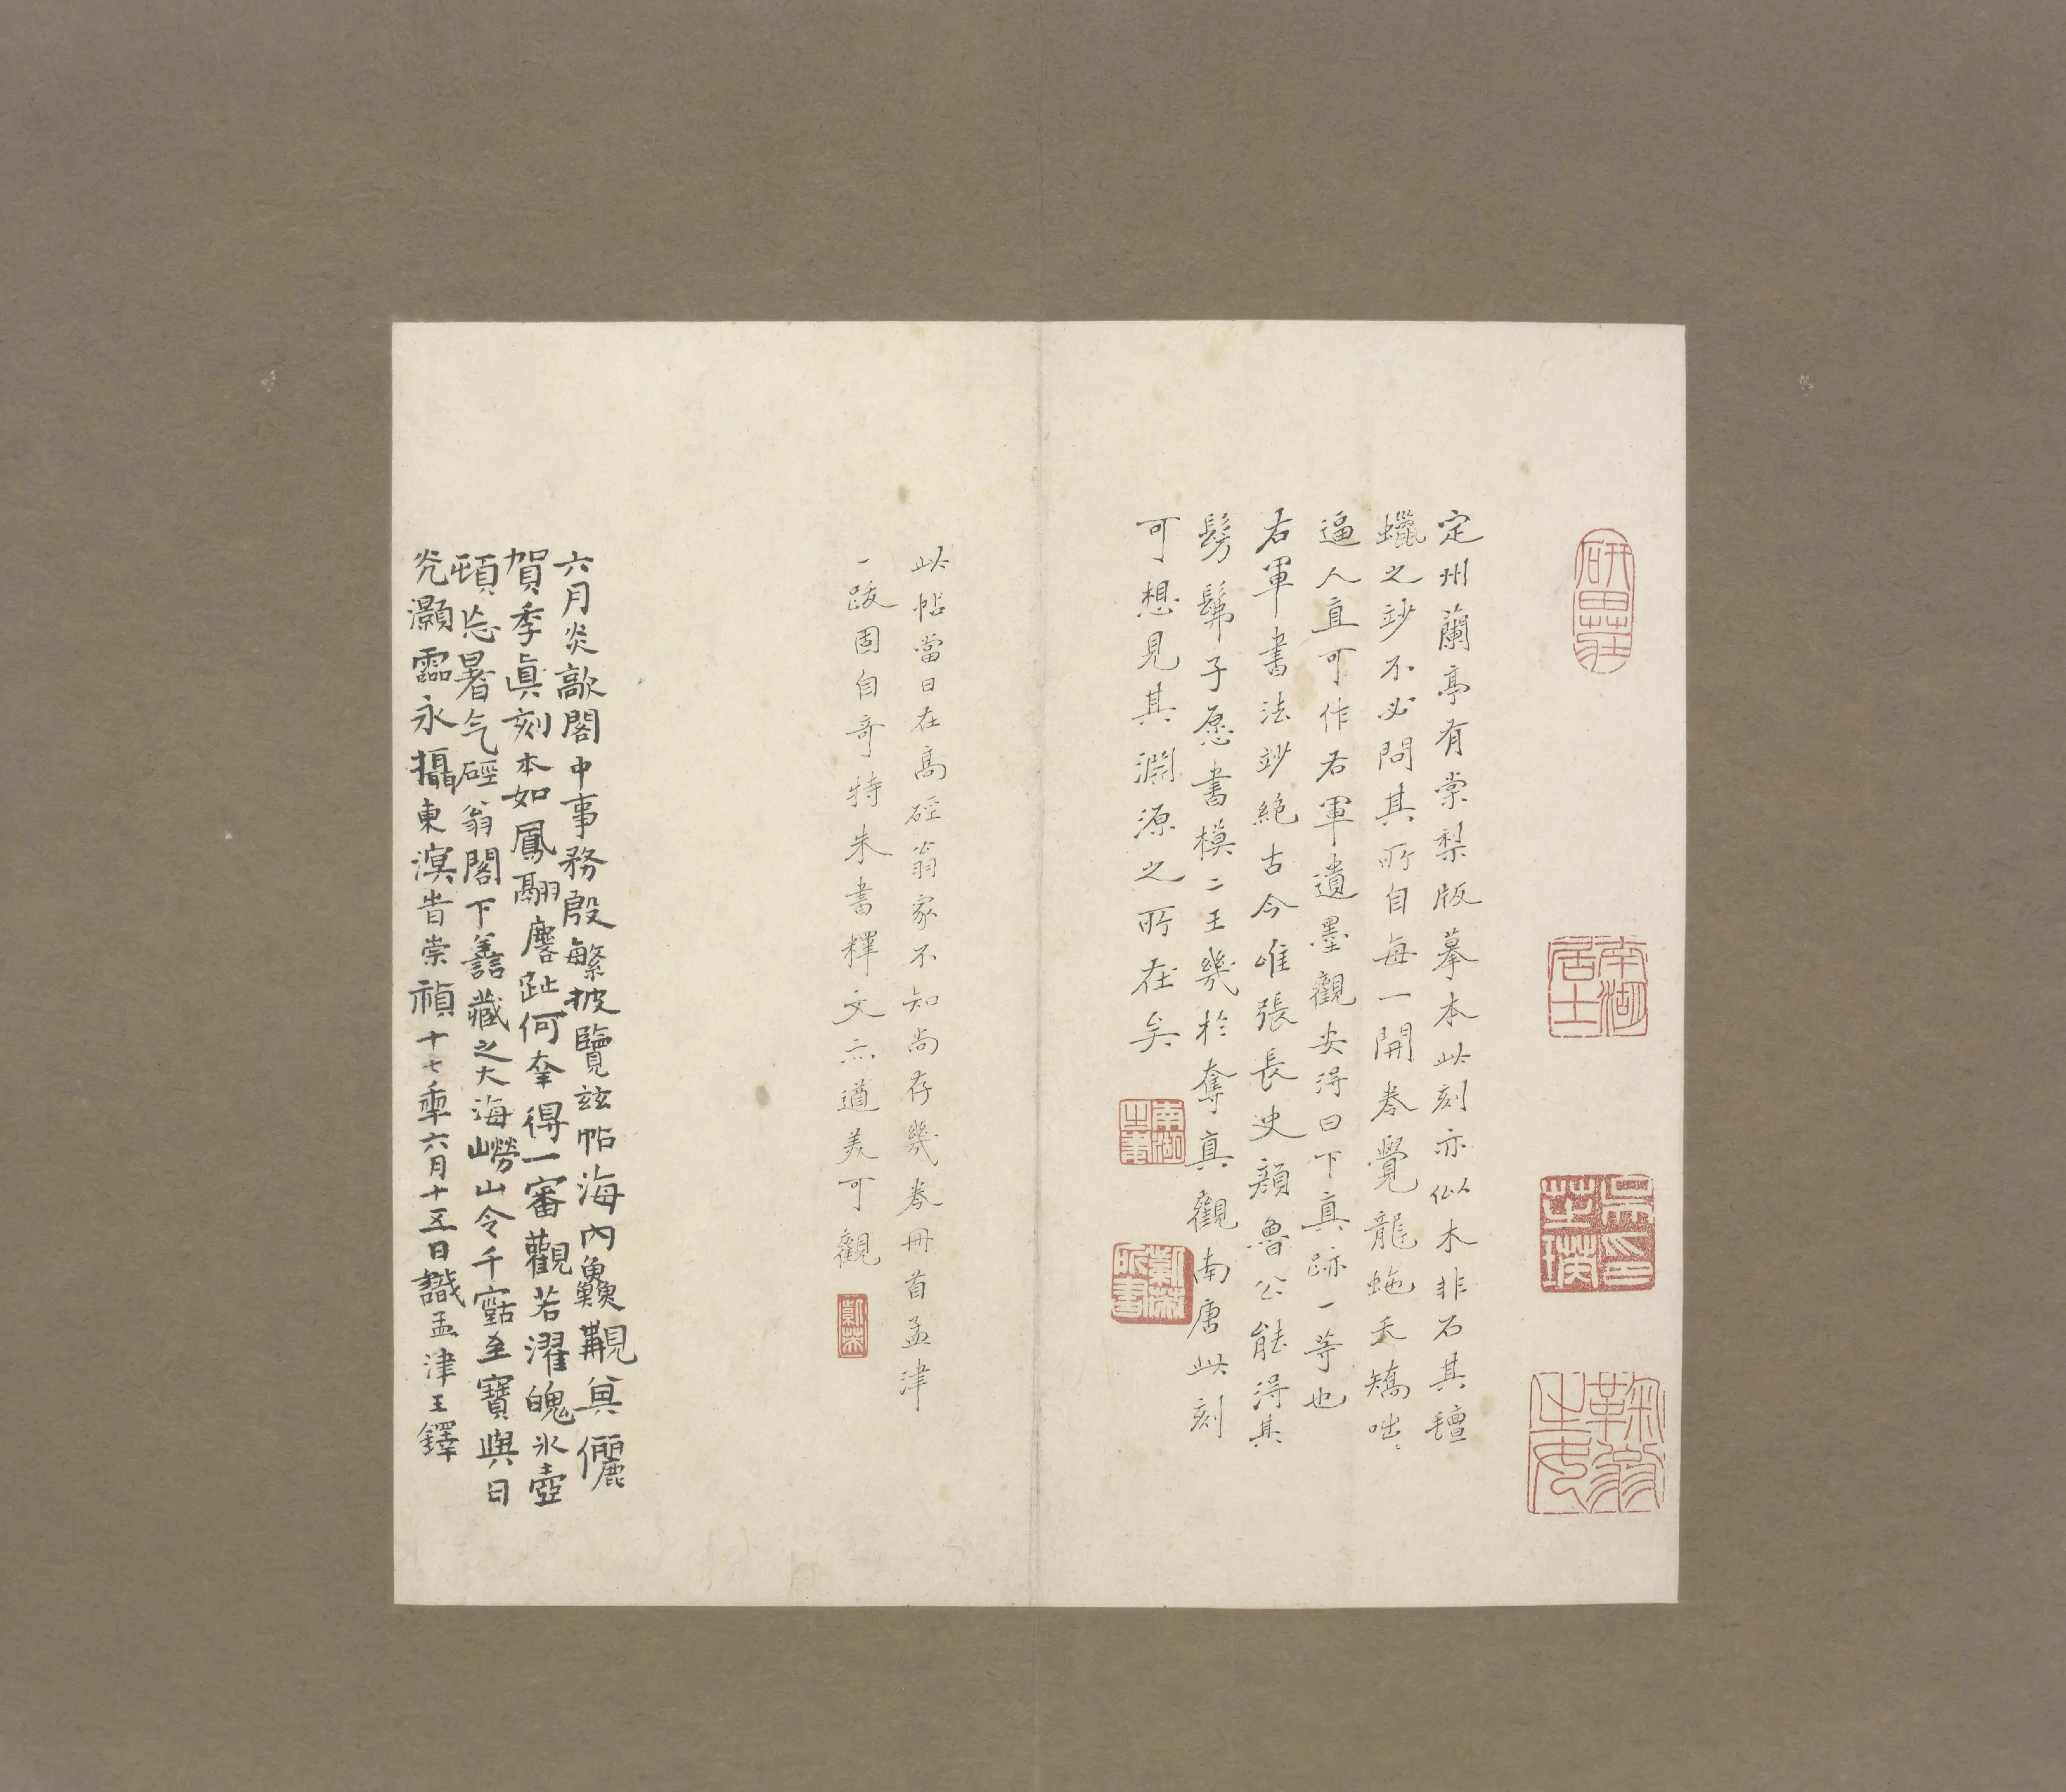 定州蘭亭有棠梨版摹本此刻亦似木非石其氊
蠟之妙不必問其所自每一開卷覺龍虵夭矯咄〻
逼人直可作右軍遺墨觀安得曰下真跡一等也
右軍書法妙絕古今唯張長史顏魯公能得其
髣髴子愿書橅二王幾於奪真觀南唐此刻
可想見其淵源之所在矣
南湖
紫榮所書
研田莊
南湖居士
吳榮
此帖當日在高硜翁家不知尚存幾卷冊首孟津
一跋固自奇特朱書釋文亦遒美可觀
紫榮
六月炎歊閣中事務殷繁披覽茲帖海內鱻覯真儷
賀季眞刻本如鳳翮麐趾何奎得一審觀若濯魄氷壺
頓忘暑气硜翁閣下譱藏之大海嶗山令千齡至寶與日
灮灝靈永攝東溟旹崇禎十七秊六月十五日識孟津王鐸